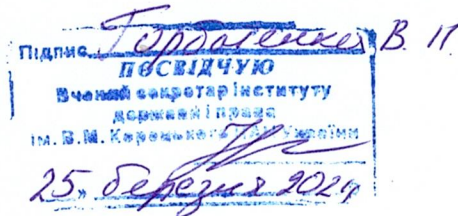 Підпис Горбатенка В. П.
ПОСВІДЧУЮ
Вчений секретар Інституту
держави і права
ім. В.М. Корецького НАН України
25 березня 2024